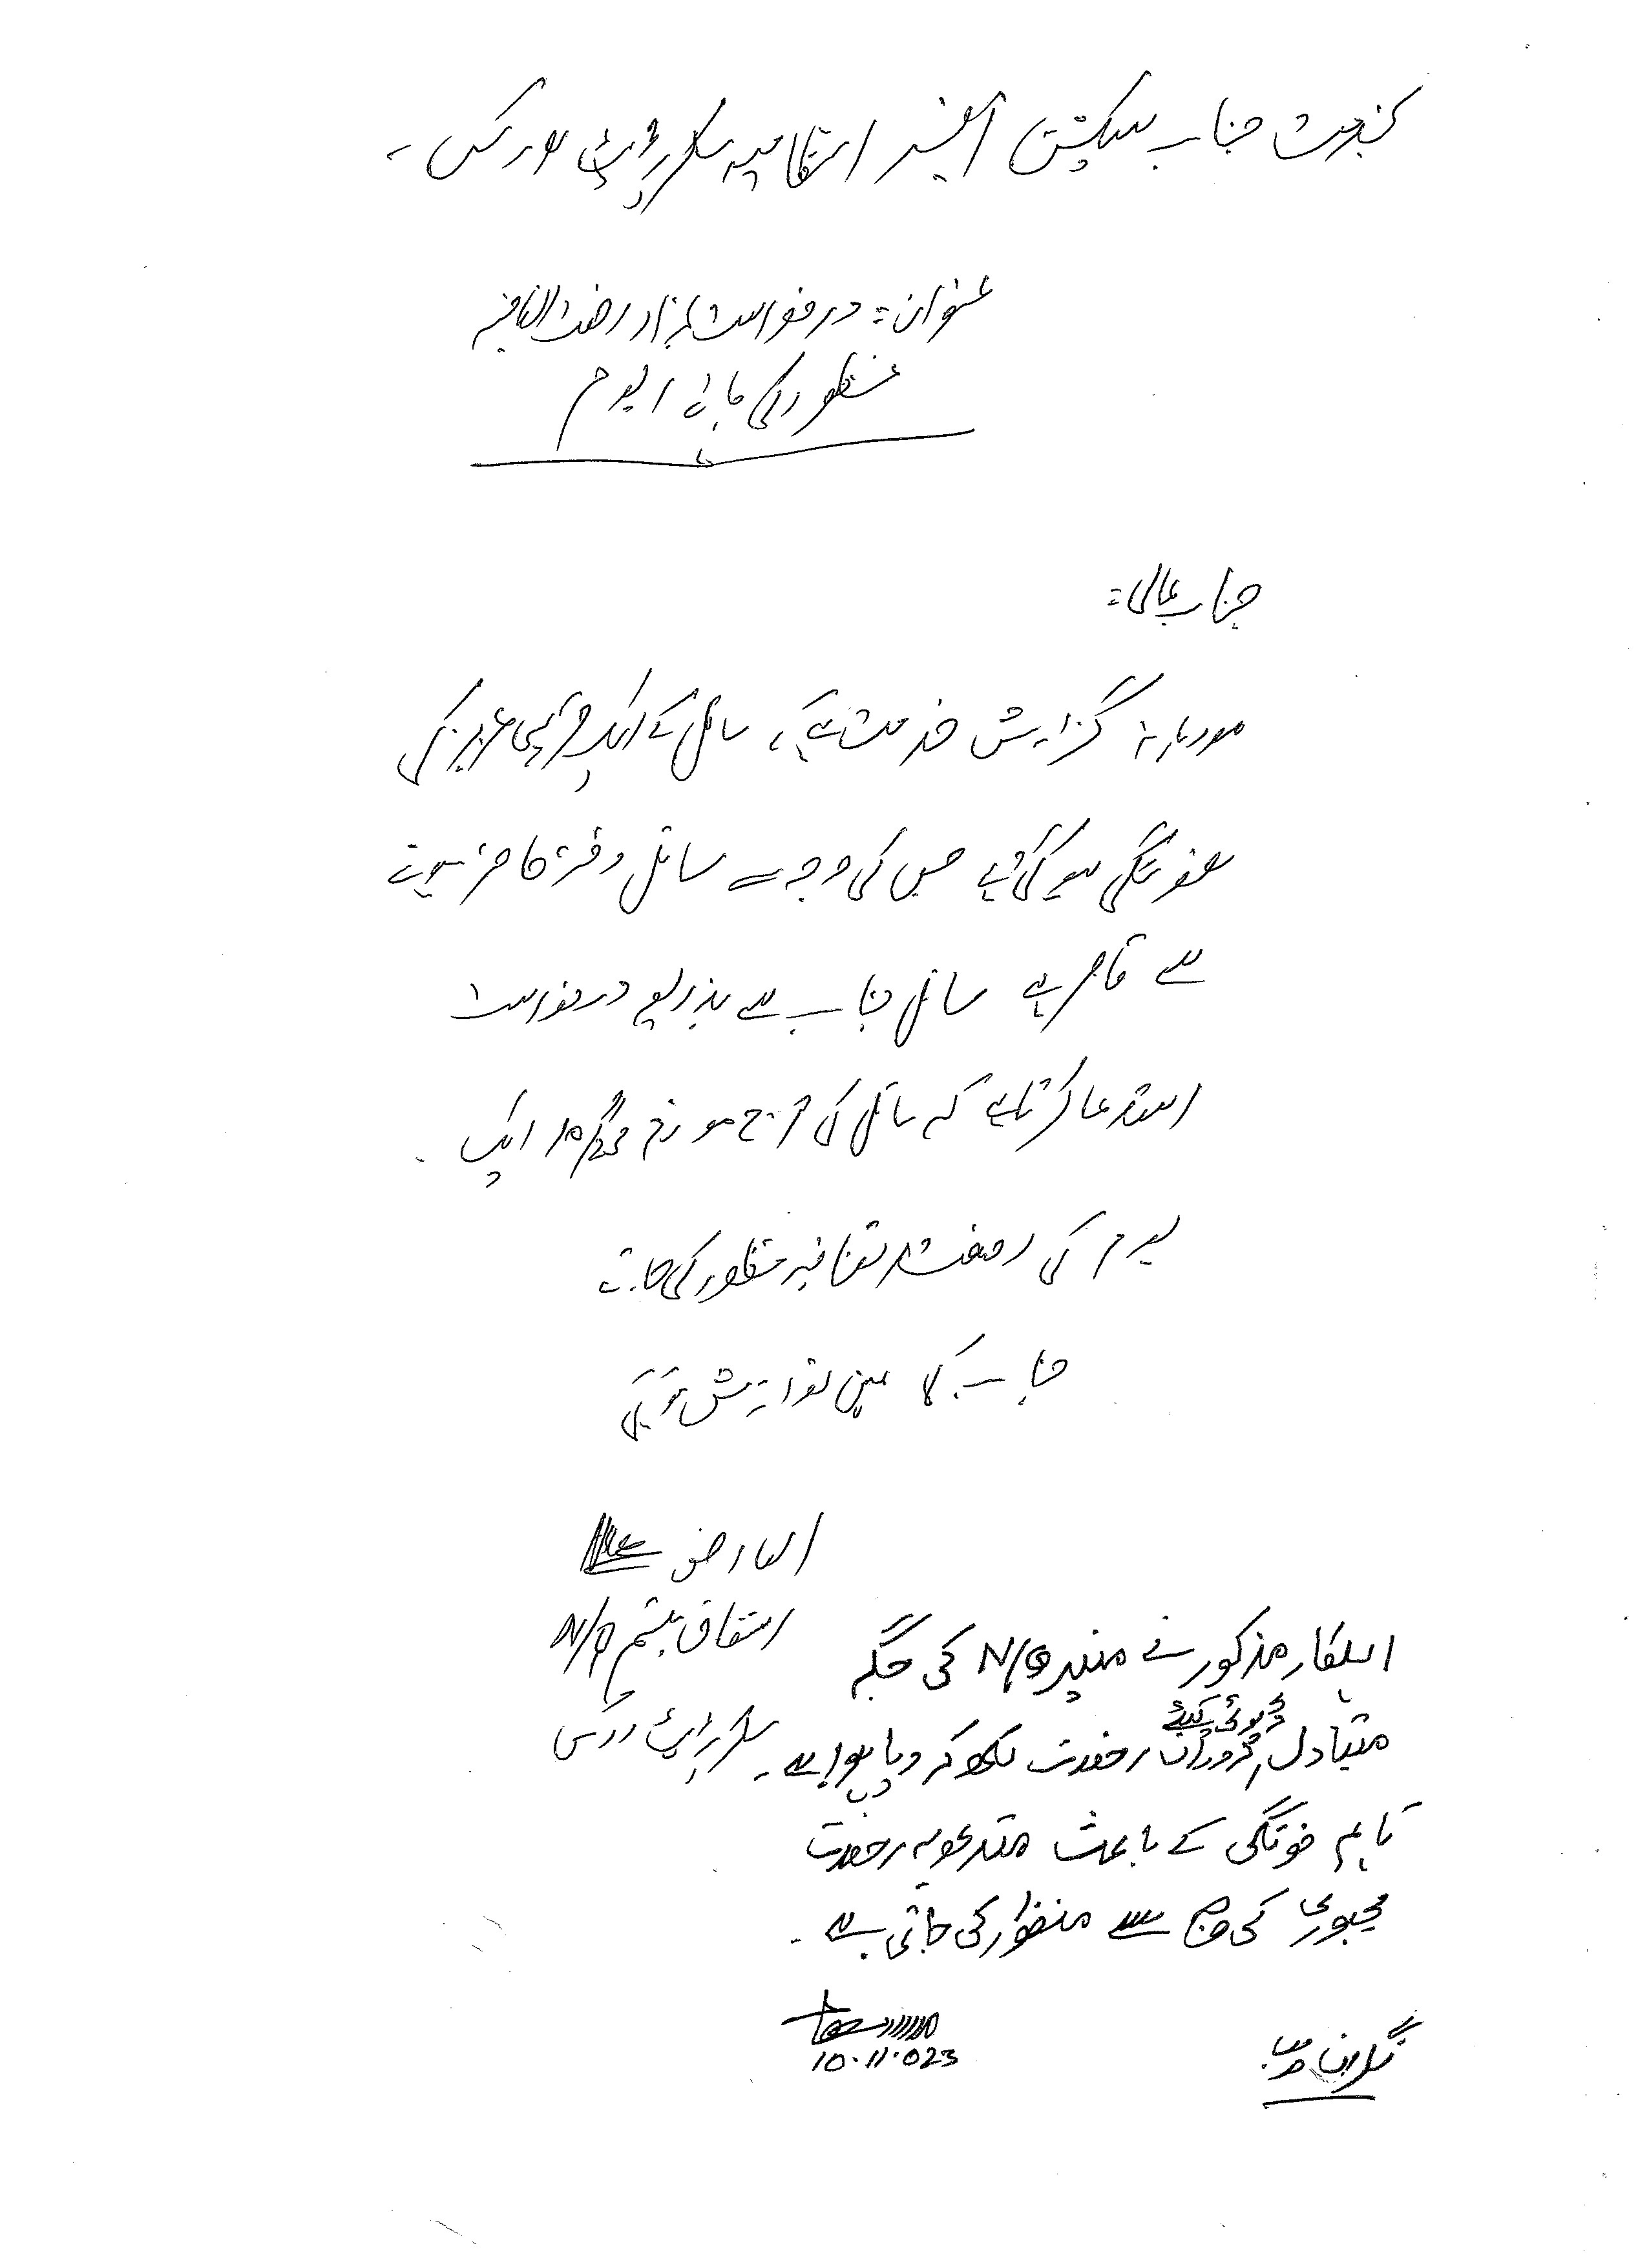 بخدمت جناب سیکشن آفیسر انتظامیہ سیکرٹریٹ ورکس۔
عنوان: درخواست بمراد رخصت اتفاقیہ
منظور کی جائے 1 یوم
جناب عالی:
مودبانہ گزارش خدمت ہے، سائل کے ایک قریبی عزیز کی
فوتگی ہو گئی ہے جس کی وجہ سے سائل دفتر حاضر ہونے
سے قاصر ہے سائل جناب سے بذریعہ درخواست
استدعا کرتا ہے کہ سائل کی آج مورخہ 10/11/23 ایک
یوم کی رخصت اتفاقیہ منظور کی جائے
جناب کی عین نوازش ہو گی
العارض
اشتقاق N/Q
سیکرٹریٹ ورکس
اہلکار مذکور نے منیر N/Q کی جگہ
متبادل ڈیوٹی کیلئے دوران رخصت لکھ کر دیا ہوا ہے۔
تاہم فوتگی کے باعث متدعویہ رخصت
مجبوری کی وجہ سے منظور کی جاتی ہے۔
10.11.023
نگران